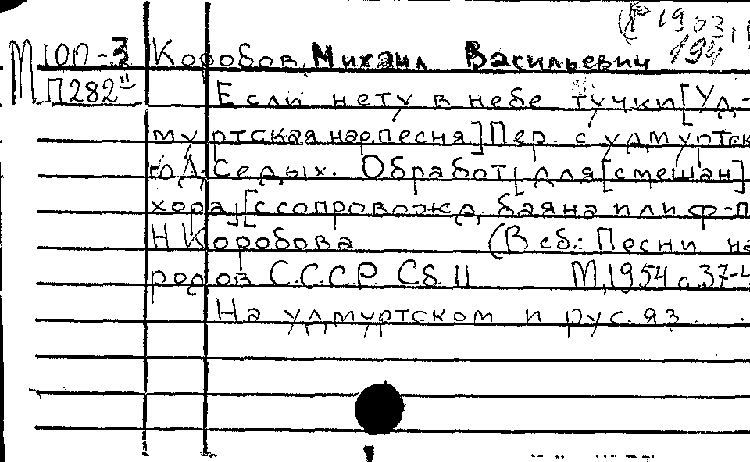 М 100-3 Коробов, Михаил Васильевич
П282" Если нету в небе тучки [Уд-
муртская нар. песня] Пер. с удмуртск
Д. Седых. Обработ. для [смешан]
хора [с сопровожд. баяна или ф-п
Н. Коробова (В сб.: Песни на-
родов С.С.С.Р Сб. 11 М, 1954 с. 37-
На удмуртском и рус. яз.